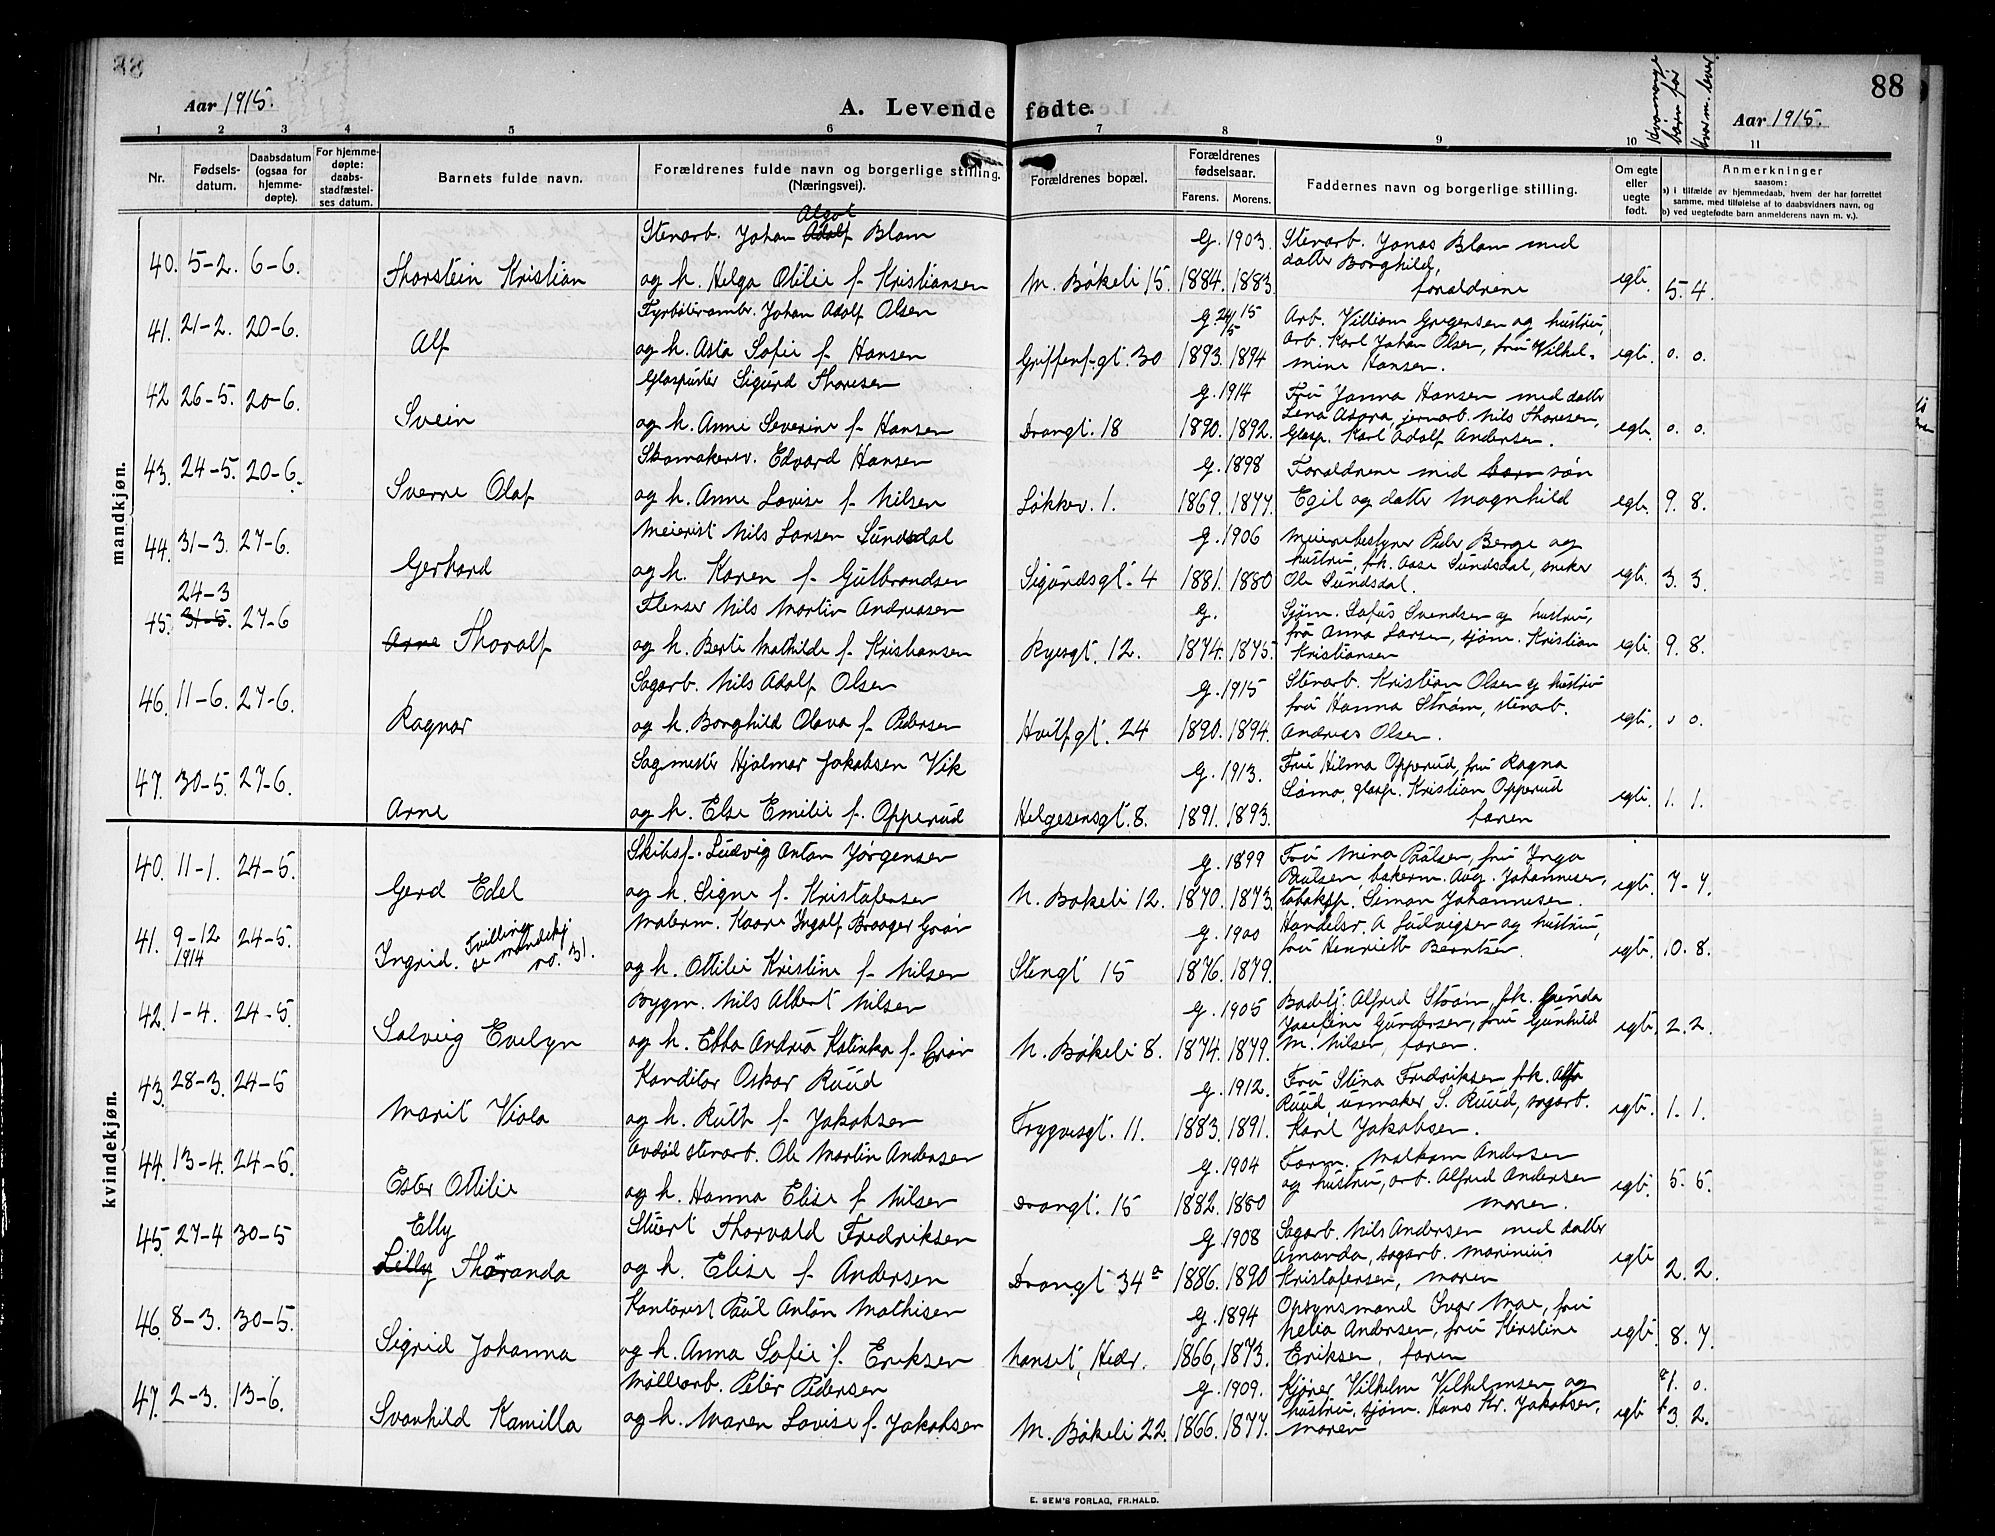 88
Aar 1915.
A. Levende fødte.
Aar 1915.
Hvormange børn før
Hvorm. lever.
1 2 3 4 5 6 7 8 9 10 11
Nr.
Fødsels-
datum.
Daabsdatum
(ogsaa for
hjemme-
døpte).
For hjemme-
døpte:
daabs-
stadfæstel-
ses datum.
Barnets fulde navn.
Forældrenes fulde navn og borgerlige stilling.
(Næringsvei).
Forældrenes bopæl.
Forældrenes
fødselsaar.
Farens. Morens.
Faddernes navn og borgerlige stilling.
Om egte
eller
uegte
født.
Anmerkninger
saasom:
a) i tilfælde av hjemmedaab, hvem der har forrettet
samme, med tilføielse af to daabsvidners navn, og
b) ved uegtefødte barn anmelderens navn m. v.).
mandkjøn.
40. 5-2. 6-6. Thorstein Kristian
Stenarb. Johan Adolf Algot Blom
og h. Helga Otilie f. Kristiansen
M. Bökeli 15. G. 1903. 1884. 1883.
Stenarb. Jonas Blom med
datter Borghild,
foraldrene
egte. 5. 4.
41. 21-2. 20-6. Alf
Fyrböteramb. Johan Adolf Olsen
og h. Asta Sofie f. Hansen
Griffenf. gt. 30 G. 24/5 15 1893. 1894
Arb. Villiam Gregersen og hustru,
arb. Karl Johan Olsen, fru Vilhel-
mine Hansen.
egte. 0. 0.
42 26-5. 20-6. Svein
Glaspuster Sigurd Thoresen
og h. Anne Severine f. Hansen
Drongt. 18 G. 1914 1890. 1892.
Fru Janna Hansen med datter
Lena Asora, jernarb. Nils Thoresen,
Glasp. Karl Adolf Andersen.
egte. 0. 0.
43. 24-5. 20-6. Sverre Olaf
Skomakersv. Edvard Hansen
og h. Anne Lovise f. Nilsen
Løkkev. 1. G. 1898 1869. 1877.
Foraldrene med barn søn
Egil og datter Magnhild
egte. 9. 8.
44. 31-3. 27-6. Gerhard
Meierist Nils Larsen Sundsdal
og h. Karen f. Gulbrandsen
Sigurdsgt. 4 G. 1906 1881. 1880
Meieribestyrer Peder Berge og
hustru, frk. Aase Sundsdal, snekker
Ole Sundsdal.
egte. 3. 3.
45. 24-3 31-5. 27-6 Arne Thoralf
Flenser Nils Martin Andreasen
og h. Berte Mathilde f. Kristiansen
Ryesgt. 12. G. 1874. 1875.
Sjøm. Sofus Svendsen og hustru,
fru Anna Larsen, sjøm. Kristian
Kristiansen
egte. 9. 8.
46. 11-6. 27-6. Ragnar
Sagarb. Nils Adolf Olsen
og h. Borghild Olava f. Pedersen
Hvitfgt. 24 G. 1915 1890. 1894.
Stenarb. Kristian Olsen og hustru
fru Hanna Strøm, stenarb.
Andreas Olsen.
egte. 0.
47. 30-5. 27-6. Arne
Sagmester Hjalmar Jakobsen Vik
og h. Else Emilie f. Opperud
Helgesensgt. 8. G. 1913. 1891. 1893.
Fru Hilma Opperud, fru Ragna
Sømo, glasp. Kristian Opperud
faren
egte. 1. 1.
kvindekjøn.
40. 11-1. 24-5. Gerd Edel
Skibsf. Ludvig Anton Jörgensen
og h. Signe f. Kristofersen
N. Bökeli 12. G. 1899 1870. 1873.
Fru Mina Paulsen, fru Inga
Paulsen, bakerm. Aug. Johannesen,
tobaksp. Simon Johannesen.
egte. 7-7.
41. 9-12 1914 24-5. Ingrid. Tvilling se mandskj. no. 31.
Malerm. Kaare Ingolf Braager Grön
og h. Ottilie Kristine f. Nilsen
Stengt 15 G. 1900 1876. 1879.
Handelsr. A Ludvigsen og hustru,
fru Henriette Berntsen.
egte. 10. 8.
42. 1-4. 24-5. Solveig Evelyn
Bygm. Nils Albert Nilsen
og h. Ebba Andrea Katinka f. Grön
N. Bökeli 8. G. 1905 1874. 1879.
Badebtj. Alfred Ström, frk. Gunda
Josefine Gundersen, fru Gunhild
M. Nilsen, faren.
egte. 2. 2.
43. 28-3. 24-5 Marit Viola
Konditor Oskar Ruud
og h. Ruth f. Jakobsen
Trygvesgt. 11. G. 1912. 1883. 1891.
Fru Stina Fredriksen, frk. Asta
Ruud, urmaker S. Ruud, sagarb.
Karl Jakobsen.
egte. 1. 1.
44. 13-4. 24-5. Ester Ottilie
Avdöd stenarb. Ole Martin Andersen
og h. Hanna Elise f. Nilsen
Drongt. 15 G. 1904 1882. 1880
Form. Malkom Andersen
og hustru, arb. Alfred Andersen
moren.
egte. 5. 5.
45. 27-4 30-5 Elly Lilly Thoranda
Stuert Thorvald Fredriksen
og h. Elise f. Andersen
Drongt 34a G. 1908 1886. 1890
Sagarb. Nils Andersen med datter
Amanda, sagarb. Marinius
Kristofersen, moren
egte 2. 2.
46. 8-3. 30-5. Sigrid Johanna
Kontorist Paul Anton Mathisen
og h. Anna Sofie f. Eriksen
Hansit, Hedr. G. 1894 1866, 1873.
Opsynsmand Ivar Moe, fru
Nelia Andersen, fru Kirstine
Eriksen, faren
egte. 8. 7.
47. 2-3. 13-6. Svanhild Kamilla
Möllearb. Peter Pedersen
og h. Maren Lovise f. Jakobsen
M. Bökeli 22. G. 1909. 1866. 1877.
Kjörer Vilhelm Vilhelmsen og
hustru, sjøm. Hans Kr. Jakobsen,
moren
egte a 1. 0.
b 3. 2.
E. SEM'S FORLAG, FR.HALD.